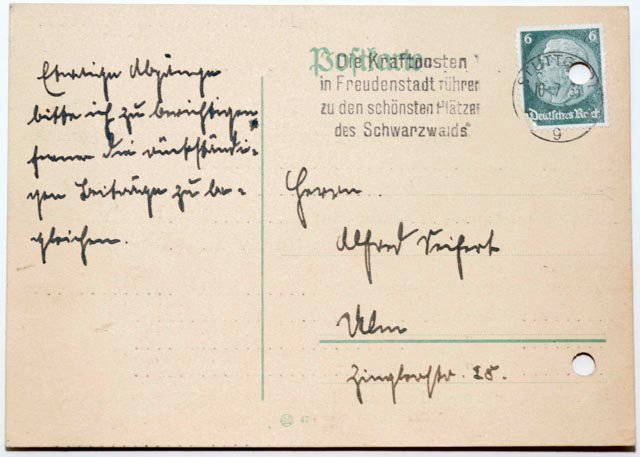 Etwaige Abgänge
bitte ich zu berichtigen
ferner die rückständi-
gen Beiträge zu be-
gleichen.
Postkarte
Die Kraftposten
in Freudenstadt führen
zu den schönsten Plätzen
des Schwarzwalds"
6 6
Deutsches Reich
STUTTG
10.7.
9
Herrn
Alfred Seifert
Ulm
Zinglerstr. 28.